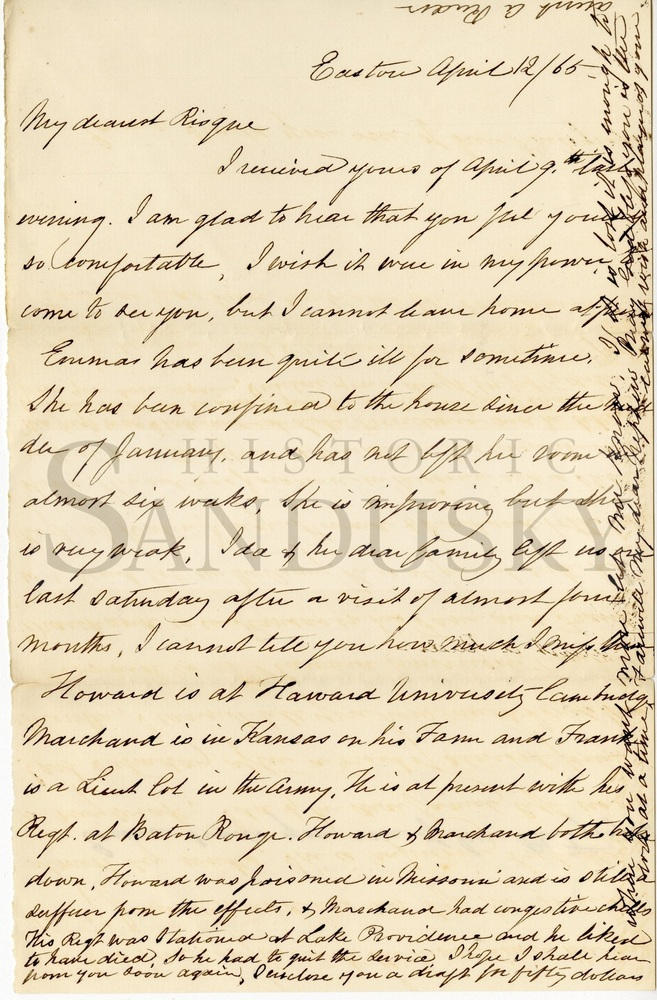 Easton April 12/65
My dearest Risque
I received yours of April 9.th last
evening. I am glad to hear that you feel
so comfortable, I wish it were in my power
come to see you, but I cannot leave home
Emma has been quite ill for sometime.
She has been confined to the house since the
der of January, and has not left her room
almost six weeks. She is improving but she
is very weak. Ida & her dear family left us on
last saturday after a visit of almost four
months, I cannot tell you how much I miss
Howard is at Harvard University Cambridg
Marchand is in Kansas on his Farm and Frank
is a Lieut Col in the Army. He is at present with his
Regt. at Baton Rouge. Howard & Marchand both
down, Howard was poisoned in Missouri and is still
sufferer from the effects, & Marchand had congestive chills
His Regt was stationed at Lake Providence and he liked
to have died, so he had to quit the service I hope I shall hear
from you soon again, I enclose you a draft for fifty dollars
when you want more let me know. If it is lost it is enough to
lose at a time. Farewell My dear Nephew may God bless you is the
earnest wish and prayer of your
aunt
HISTORIC
SANDUSKY